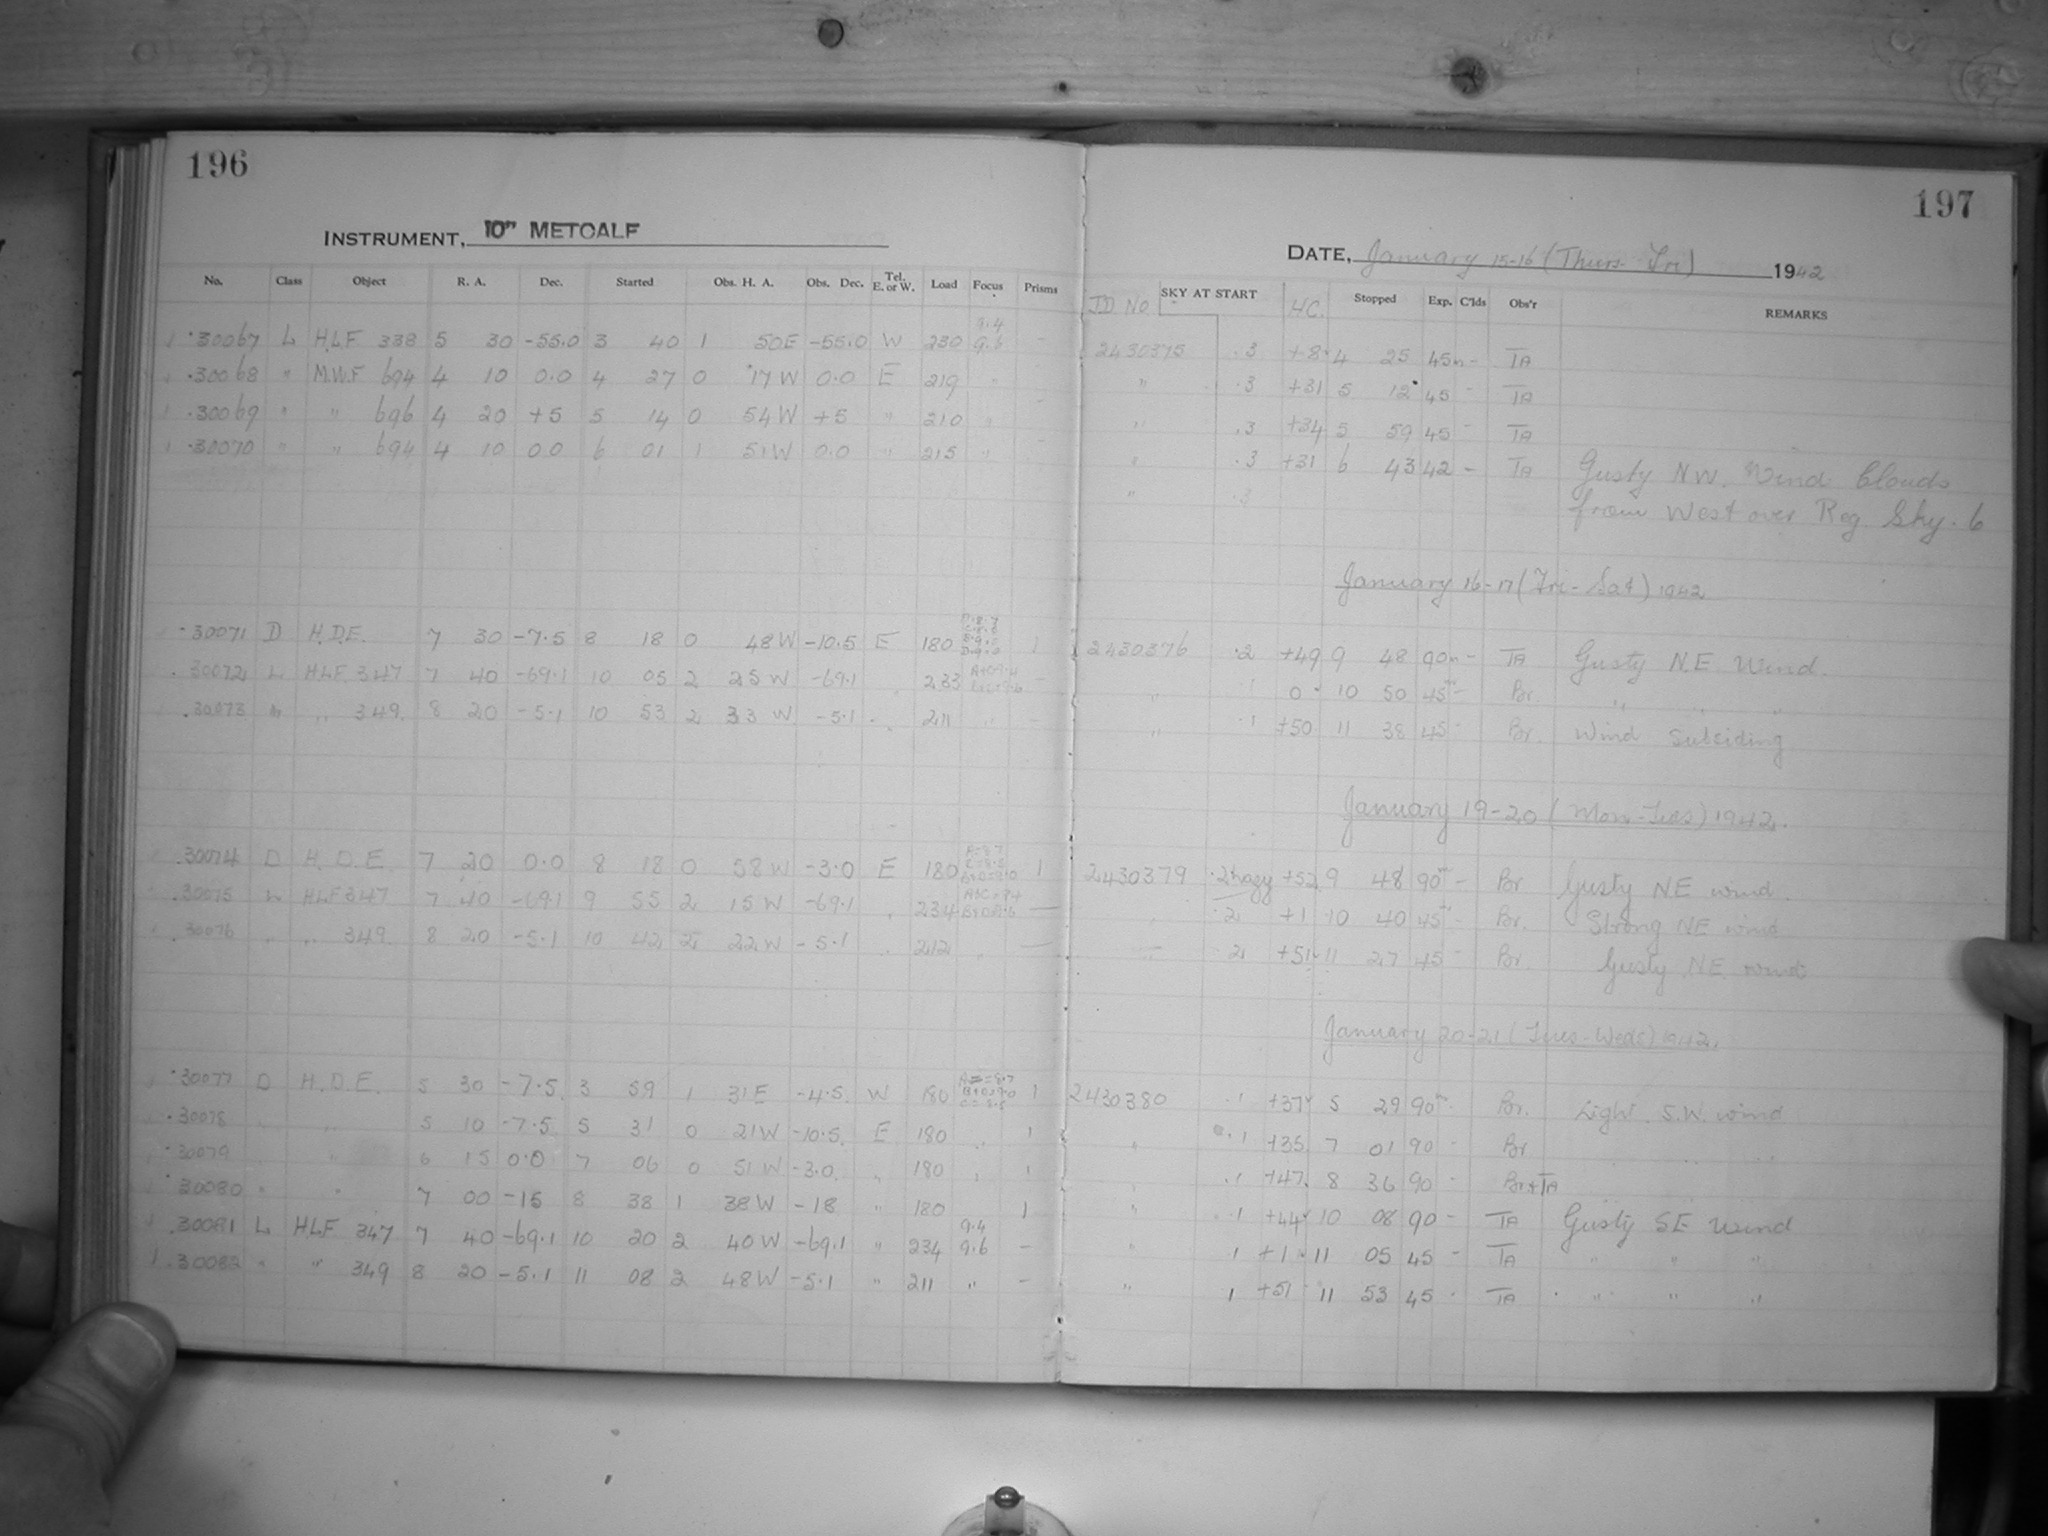 196
INSTRUMENT, 10" METCALF
No. Class Object R. A. Dec. Started Obs. H. A. Obs. Dec. Tel. E. or W. Load Focus Prisms
30067 L HLF 338 5 30 -55.0 3 40 1 50E -55.0 W 230 9.4 9.6 -
30068 " M.W.F 694 4 10 0.0 4 27 0 17W 0.0 E 219 "
30069 " " 696 4 20 +5 5 14 0 54W +5 " 210 "
30070 " " 694 4 10 0.0 6 01 1 51W 0.0 " 215 "
30071 D H.D.E. 7 30 -7.5 8 18 0 48W -10.5 E 180 1
30072 L HLF 347 7 40 -69.1 10 05 2 25W -69.1 " 233 -
30073 L " 349 8 20 -5.1 10 53 2 33W -5.1 " 211 " -
30074 D H.D.E. 7 20 0.0 8 18 0 58W -3.0 E 180 1
30075 L HLF 347 7 40 -69.1 9 55 2 15W -69.1 " 234 -
30076 " " 349 8 20 -5.1 10 42 2 22W -5.1 " 212 " -
30077 D H.D.E. 5 30 -7.5 3 59 1 31E -4.5 W 180 1
30078 " " 5 10 -7.5 5 31 0 21W -10.5 E 180 " 1
30079 " " 6 15 0.0 7 06 0 51W -3.0 " 180 " 1
30080 " " 7 00 -15 8 38 1 38W -18 " 180 1
30081 L HLF 347 7 40 -69.1 10 20 2 40W -69.1 " 234 9.4 9.6 -
30082 " " 349 8 20 -5.1 11 08 2 48W -5.1 " 211 " -
197
DATE, January 15-16 (Thurs-Fri) 1942
JD No SKY AT START H.C. Stopped Exp. C'lds Obs'r REMARKS
2430375 .3 +8 4 25 45m - TA
" .3 +31 5 12 45 - TA
" .3 +34 5 59 45 - TA
" .3 +31 6 43 42 - TA Gusty NW. Wind Clouds
" .3 from West over Reg. Sky .6
January 16-17 (Fri-Sat) 1942
2430376 .2 +49 9 48 90m - TA Gusty N.E. Wind.
" .1 0 10 50 45m - Br. " " "
" .1 +50 11 38 45 - Br. Wind subsiding
January 19-20 (Mon-Tues) 1942.
2430379 .2 hazy +52 9 48 90m - Br Gusty NE wind.
" .2 +1 10 40 45m - Br. Strong NE wind
" .2 +51 11 27 45 - Br. Gusty NE wind
January 20-21 (Tues-Weds) 1942.
2430380 .1 +37 5 29 90m Br. Light S.W. wind
" .1 +35 7 01 90 - Br " "
" .1 +47 8 36 90 - Br+TA
" .1 +44 10 08 90 - TA Gusty SE Wind
" 1 +1 11 05 45 - TA " " "
" 1 +51 11 53 45 - TA " " "